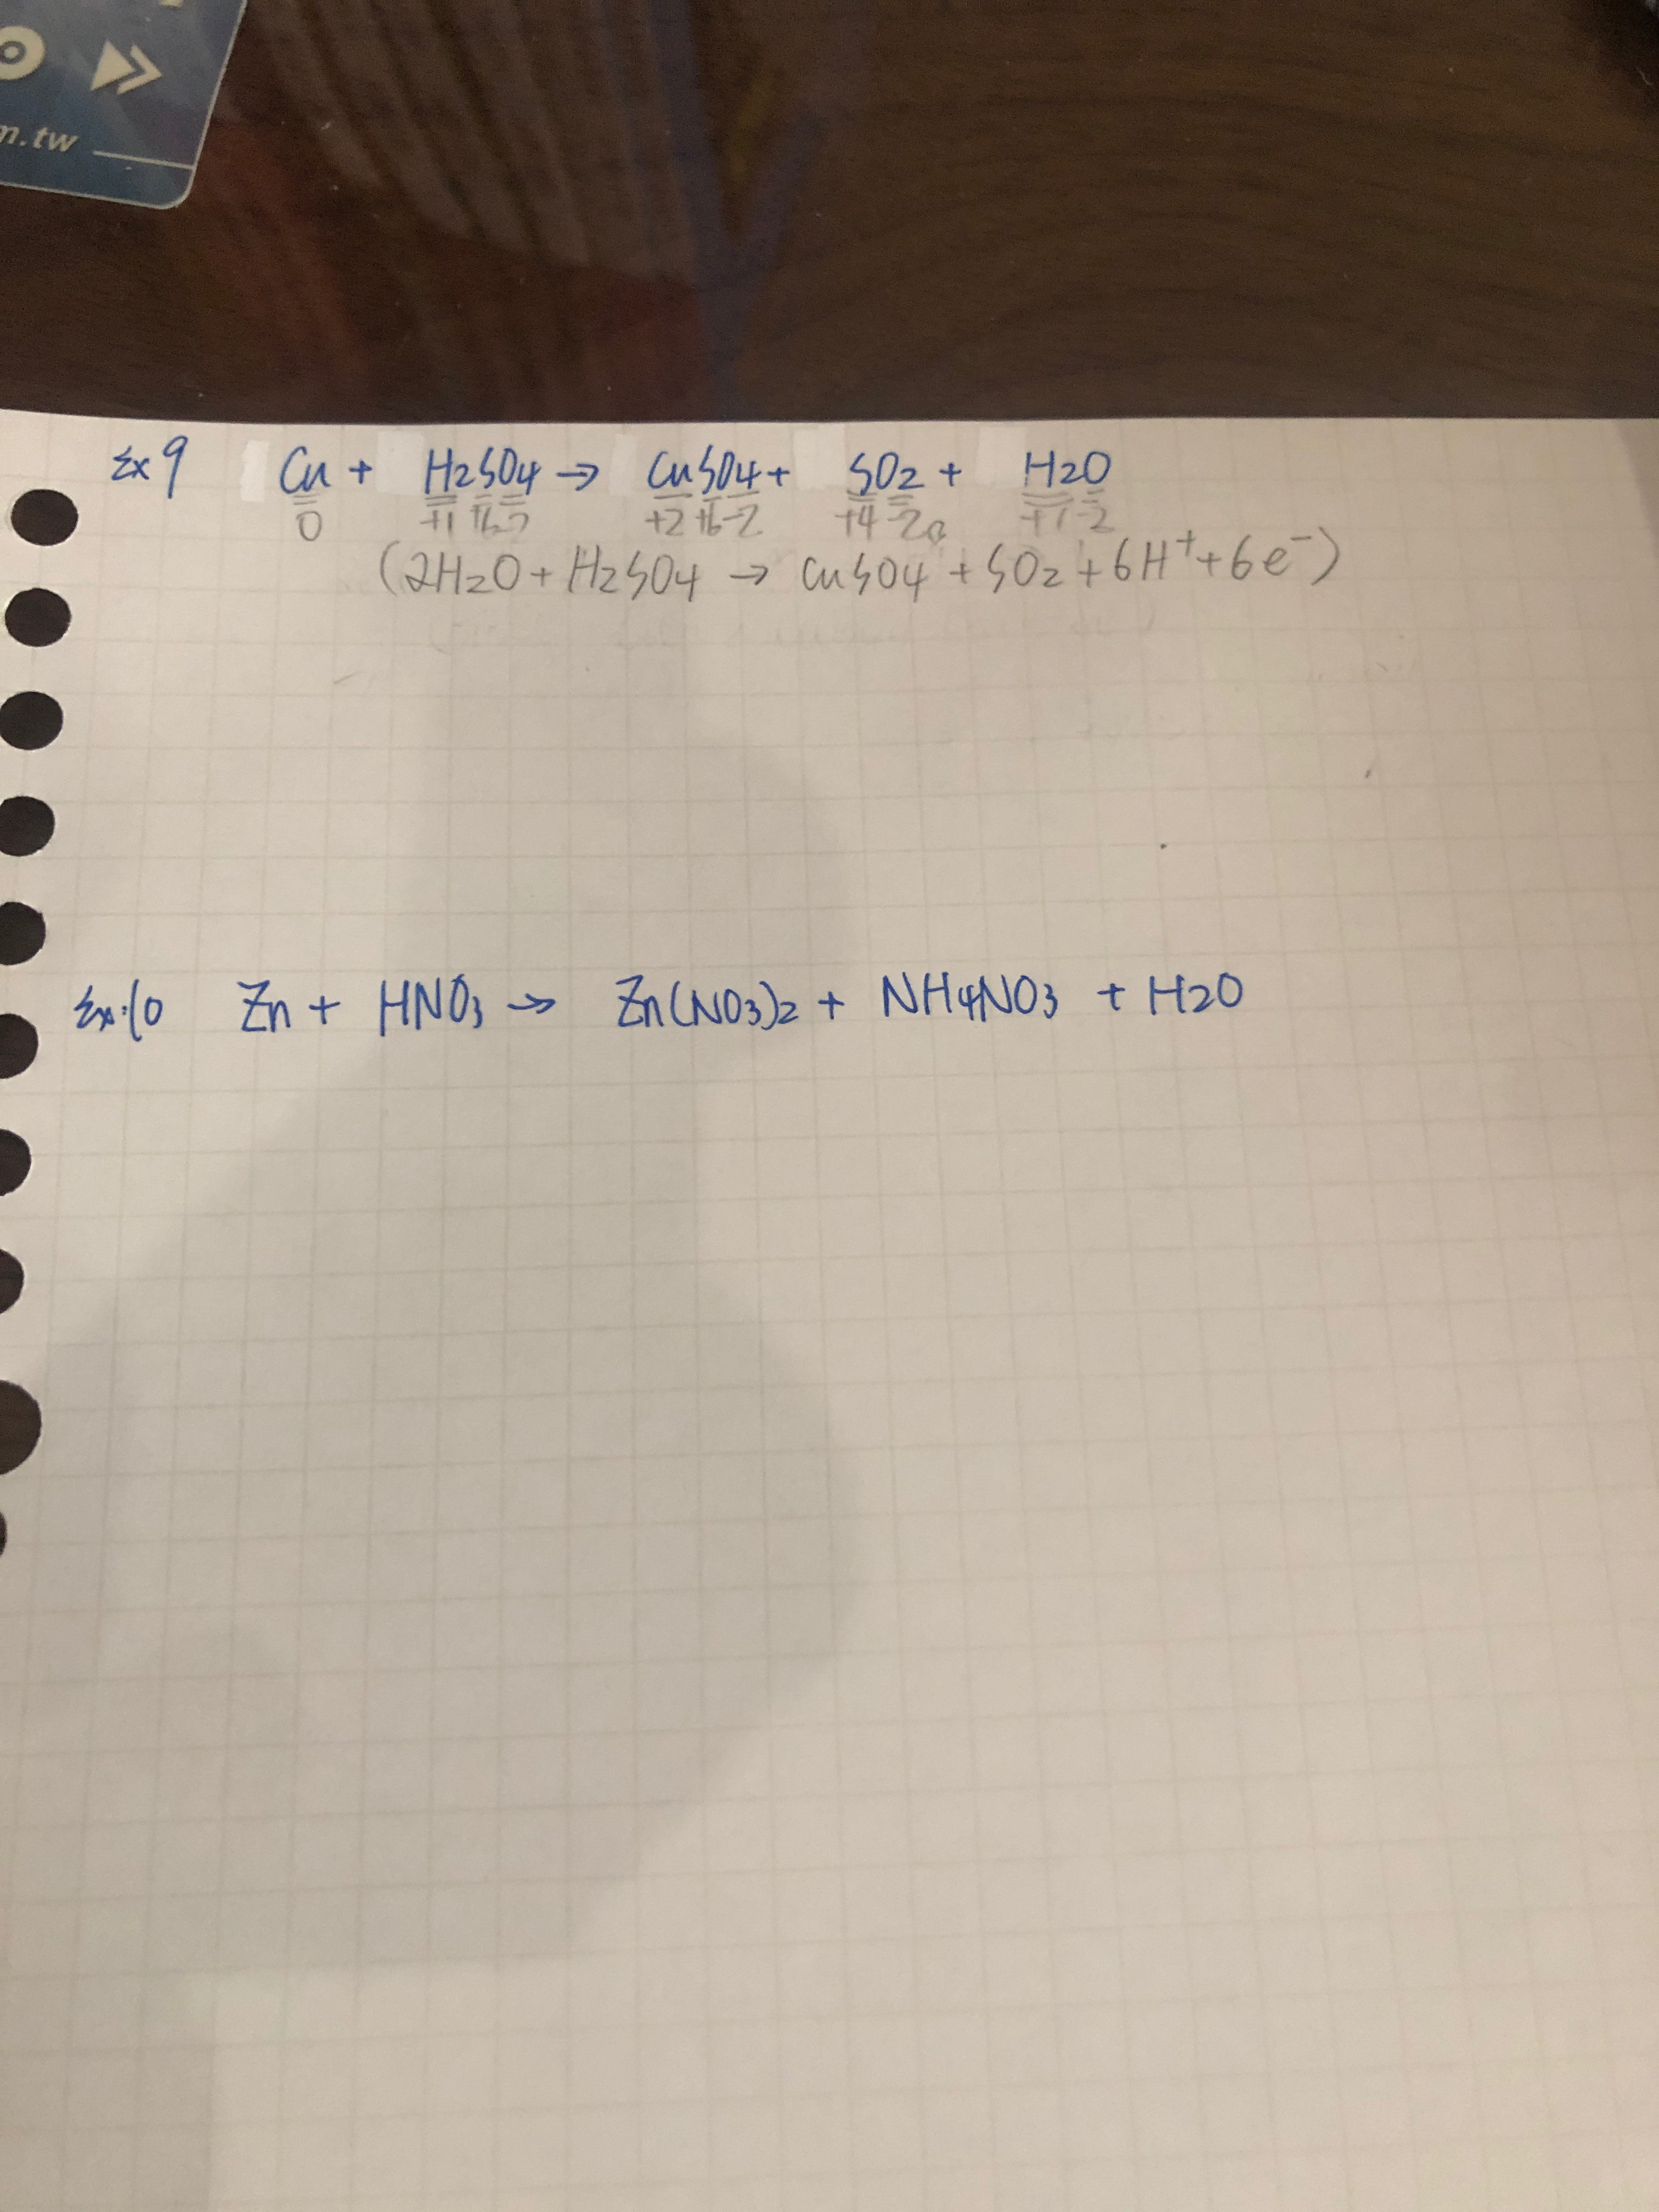 m.tw
Ex 9 Cu + H2SO4 → CuSO4 + SO2 + H2O
0 +1 +6 -2 +2 +6 -2 +4 -2 +1 -2
(2H2O + H2SO4 → CuSO4 + SO2 + 6H⁺ + 6e⁻)
Ex.10 Zn + HNO3 → Zn(NO3)2 + NH4NO3 + H2O